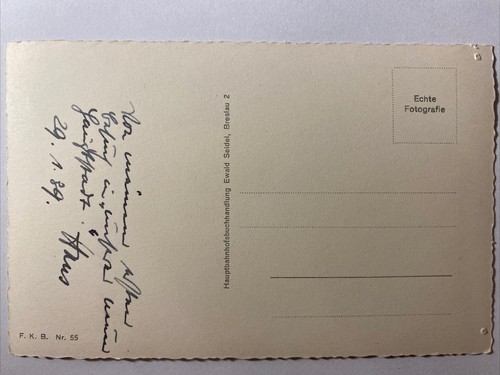 Von meinem
in unsrer neuen
Hans
29. 1. 39.
Hauptbahnhofsbuchhandlung Ewald Seidel, Breslau 2
Echte
Fotografie
F. K. B. Nr. 55